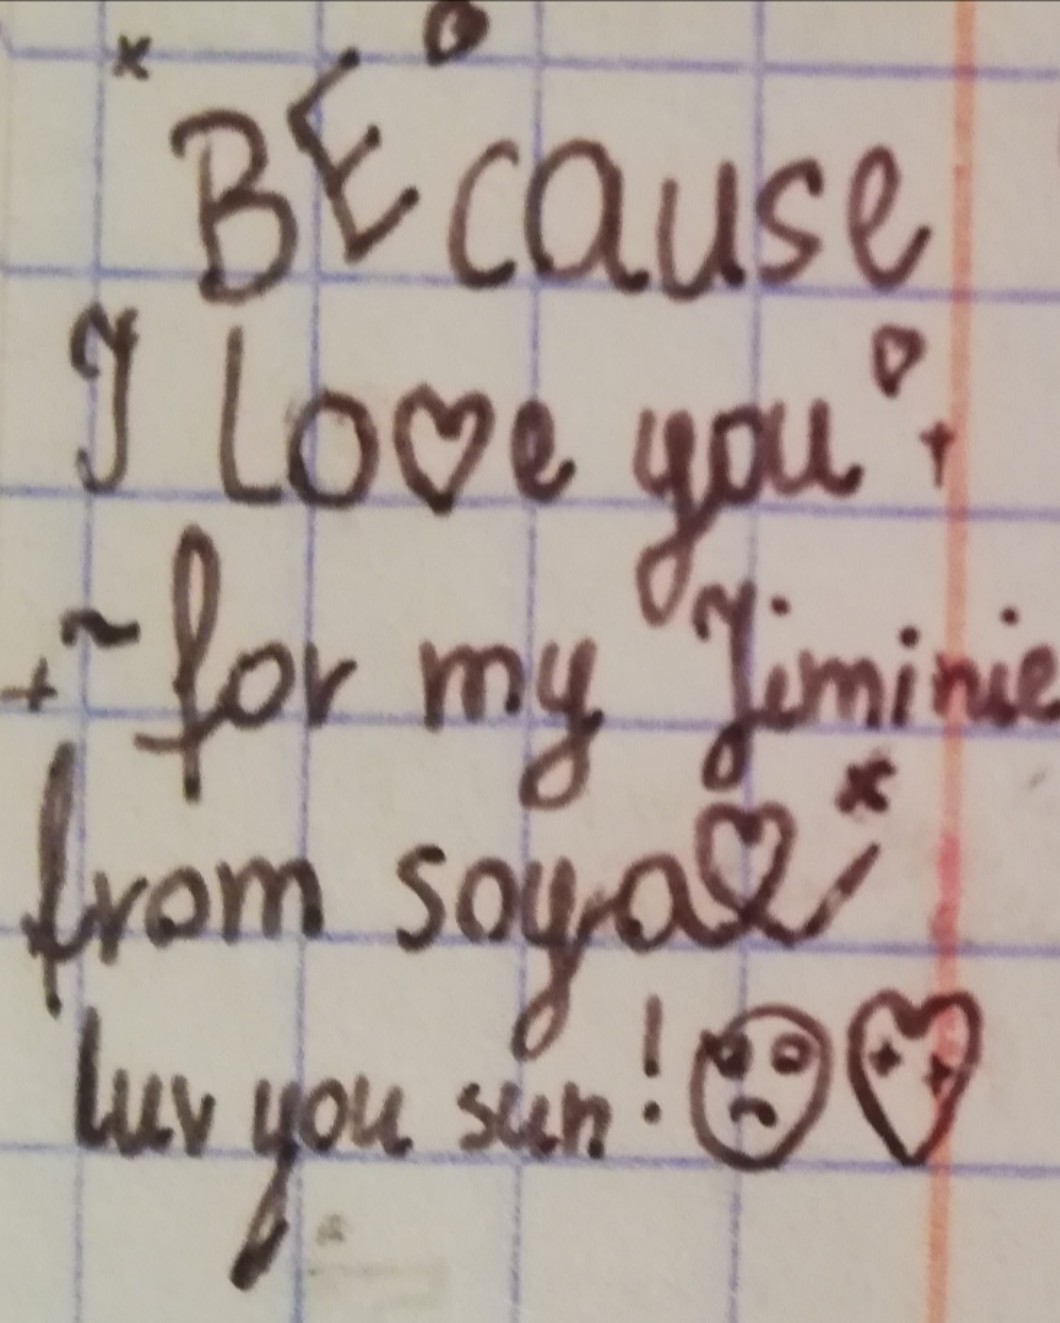 BEcause
I Lo♡e you
~for my Jiminie
from soya
luv you sun!